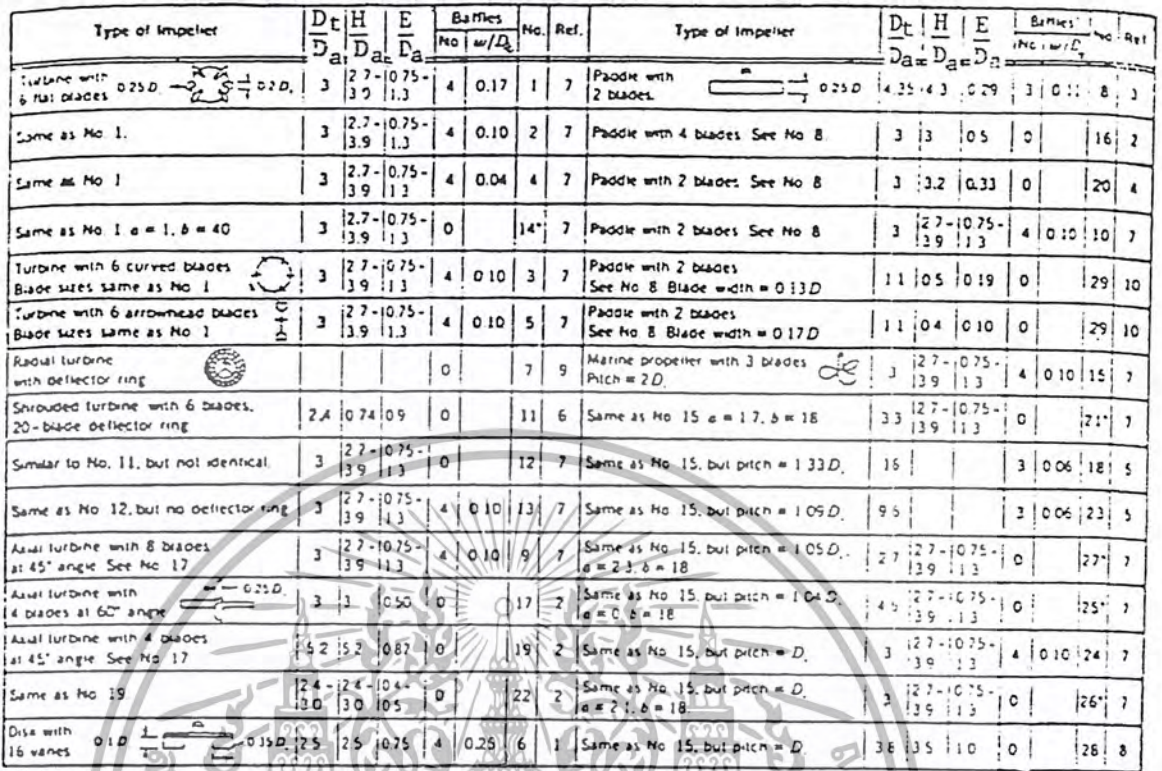 Type of Impeller Dt/Da H/Da E/Da Baffles No w/Dt No. Ref.
Turbine with 6 flat blades 0.25D 0.2D 3 2.7-3.9 0.75-1.3 4 0.17 1 7
Same as No. 1. 3 2.7-3.9 0.75-1.3 4 0.10 2 7
Same as No 1 3 2.7-3.9 0.75-1.3 4 0.04 4 7
Same as No. 1 a = 1, b = 40 3 2.7-3.9 0.75-1.3 0 14* 7
Turbine with 6 curved blades Blade sizes same as No 1 3 2.7-3.9 0.75-1.3 4 0.10 3 7
Turbine with 6 arrowhead blades Blade sizes same as No 1 3 2.7-3.9 0.75-1.3 4 0.10 5 7
Radial turbine with deflector ring 0 7 9
Shrouded turbine with 6 blades, 20-blade deflector ring 2.4 0.74 0.9 0 11 6
Similar to No. 11, but not identical. 3 2.7-3.9 0.75-1.3 0 12 7
Same as No 12, but no deflector ring 3 2.7-3.9 0.75-1.3 4 0.10 13 7
Axial turbine with 8 blades at 45° angle See No 17 3 2.7-3.9 0.75-1.3 4 0.10 9 7
Axial turbine with 4 blades at 60° angle 0.25D 3 3 0.50 0 17 2
Axial turbine with 4 blades at 45° angle See No 17 5.2 5.2 0.87 0 19 2
Same as No 19 2.4-3.0 2.4-3.0 0.4-0.5 0 22 2
Disk with 16 vanes 0.1D 0.35D 2.5 2.5 0.75 4 0.25 6 1
Type of Impeller Dt/Da H/Da E/Da Baffles No w/D No Ref
Paddle with 2 blades. 0.25D 4.35 4.3 0.29 3 0.11 8 3
Paddle with 4 blades See No 8. 3 3 0.5 0 16 2
Paddle with 2 blades. See No 8 3 3.2 0.33 0 20 4
Paddle with 2 blades See No 8 3 2.7-3.9 0.75-1.3 4 0.10 10 7
Paddle with 2 blades See No 8 Blade width = 0.13D 1.1 0.5 0.19 0 29 10
Paddle with 2 blades See No 8 Blade width = 0.17D 1.1 0.4 0.10 0 29 10
Marine propeller with 3 blades Pitch = 2D. 3 2.7-3.9 0.75-1.3 4 0.10 15 7
Same as No 15 a = 1.7, b = 18 3.3 2.7-3.9 0.75-1.3 0 21* 7
Same as No 15, but pitch = 1.33D. 16 3 0.06 18 5
Same as No 15, but pitch = 1.09D. 9.6 3 0.06 23 5
Same as No. 15, but pitch = 1.05D. a = 2.3, b = 18 2.7 2.7-3.9 0.75-1.3 0 27* 7
Same as No 15, but pitch = 1.04D. a = 0, b = 18 4.5 2.7-3.9 0.75-1.3 0 25* 7
Same as No 15, but pitch = D. 3 2.7-3.9 0.75-1.3 4 0.10 24 7
Same as No 15, but pitch = D. a = 2.1, b = 18. 3 2.7-3.9 0.75-1.3 0 26* 7
Same as No 15, but pitch = D 3.8 3.5 1.0 0 28 8